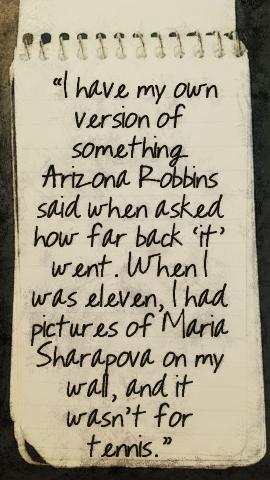 “I have my own
version of
something
Arizona Robbins
said when asked
how far back ‘it’
went. When I
was eleven, I had
pictures of Maria
Sharapova on my
wall, and it
wasn’t for
tennis.”